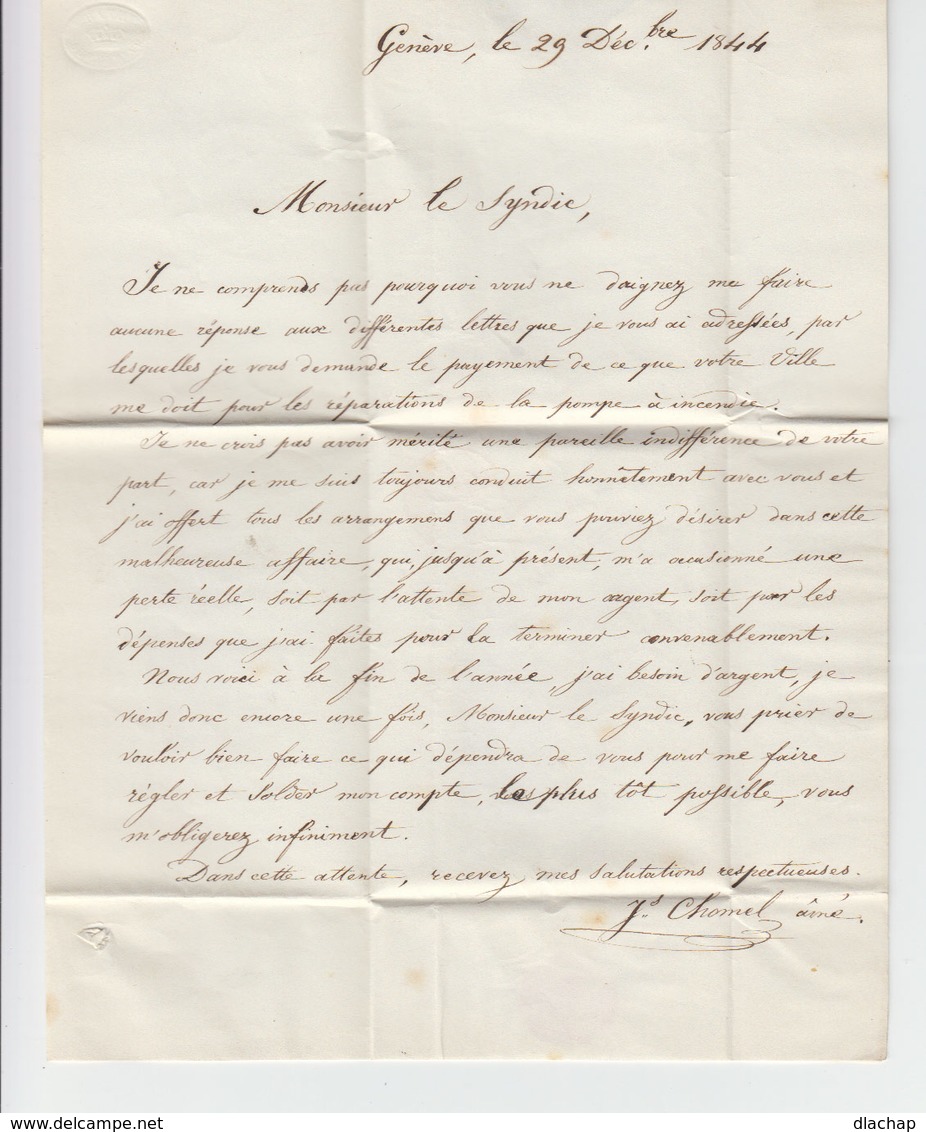 Genève, le 29 Déc.bre 1844
Monsieur le Syndic,
Je ne comprends pas pourquoi vous ne daignez me faire
aucune réponse aux différentes lettres que je vous ai adressées, par
lesquelles je vous demande le payement de ce que votre Ville
me doit pour les réparations de la pompe à incendie.
Je ne crois pas avoir mérité une pareille indifférence de votre
part, car je me suis toujours conduit honnêtement avec vous et
j'ai offert tous les arrangemens que vous pouviez désirer dans cette
malheureuse affaire, qui, jusqu'à présent, m'a occasionné une
perte réelle, soit par l'attente de mon argent, soit par les
dépenses que j'ai faites pour la terminer convenablement.
Nous voici à la fin de l'année, j'ai besoin d'argent, je
viens donc encore une fois, Monsieur le Syndic, vous prier de
vouloir bien faire ce qui dépendra de vous pour me faire
régler et solder mon compte, le plus tôt possible, vous
m'obligerez infiniment.
Dans cette attente, recevez mes salutations respectueuses.
Js. Chomel aîné.
delcampe.net
dlachap